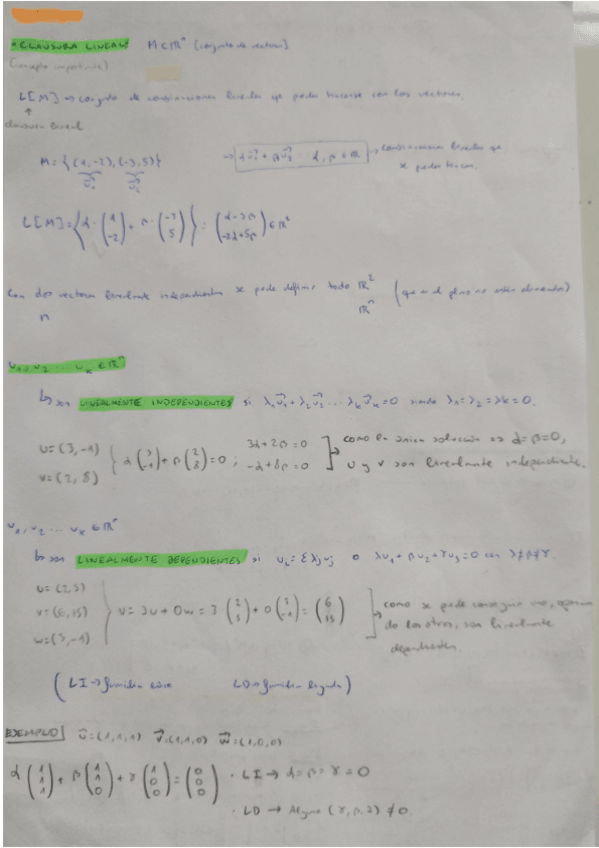 "CLAUSURA LINEAL" M ⊂ ℝⁿ (conjunto de vectores)
(concepto importante)
L[M] → conjunto de combinaciones lineales que pueden hacerse con los vectores.
↑
clausura lineal
M = {(1,-2), (-3,5)} → αv₁ + βv₂ α, β ∈ ℝ → combinaciones lineales que
se pueden hacer.
L[M] = {α·(1 -2) + β·(-3 5)} : (α-3β -2α+5β) ∈ ℝ²
Con dos vectores linealmente independientes se puede definir todo ℝ² (que en el plano no estén alineados)
n ℝⁿ
u₁, u₂ ... uₖ ∈ ℝⁿ
↳ son LINEALMENTE INDEPENDIENTES si λ₁v₁ + λ₂v₂ ... λₖvₖ = 0 siendo λ₁ = λ₂ = λk = 0.
u = (3,-1)
v = (2,8) } α(3 -1) + β(2 8) = 0 ; 3α + 2β = 0
-α + 8β = 0 ] → como la única solución es α = β = 0,
u y v son linealmente independientes.
u₁, u₂ ... uₖ ∈ ℝⁿ
↳ son LINEALMENTE DEPENDIENTES si uᵢ = Σλⱼuⱼ o λu₁ + βu₂ + γu₃ = 0 con λ≠β≠γ.
u = (2,5)
v = (6,15) } v = 3u + 0w = 3·(2 5) + 0(3 -1) = (6 15)
w = (3,-1)
→ como se puede conseguir uno,
de los otros, son linealmente
dependientes.
(LI → familia libre LD → familia ligada)
EJEMPLO u = (1,1,1) v = (1,1,0) w = (1,0,0)
α(1 1 1) + β(1 1 0) + γ(1 0 0) = (0 0 0) · LI → α = β = γ = 0
· LD → Alguno ≠ 0